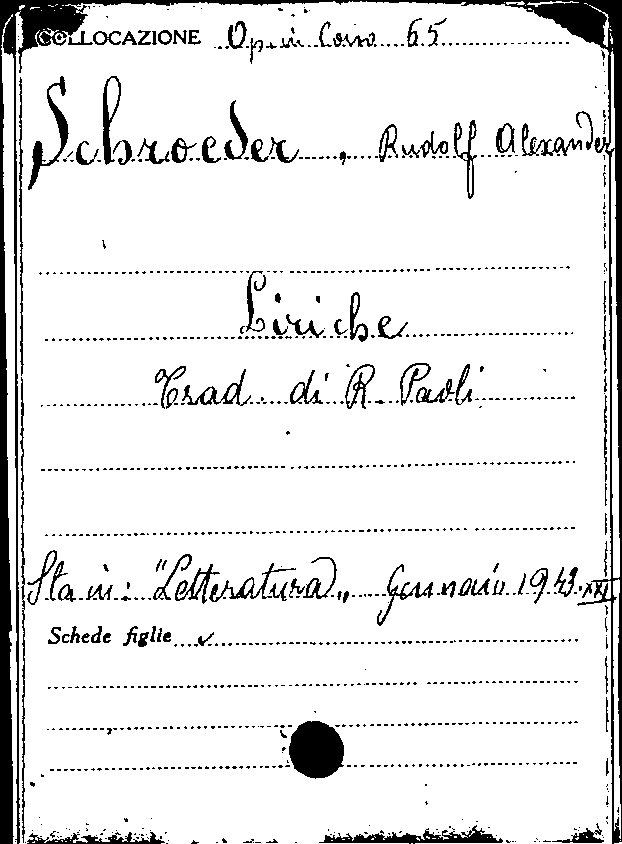 COLLOCAZIONE Op. in Corso 65
Schroeder, Rudolf Alexander
Liriche
Trad. di R. Paoli
Sta in: "Letteratura„ Gennaio 1943.XXI
Schede figlie ✓